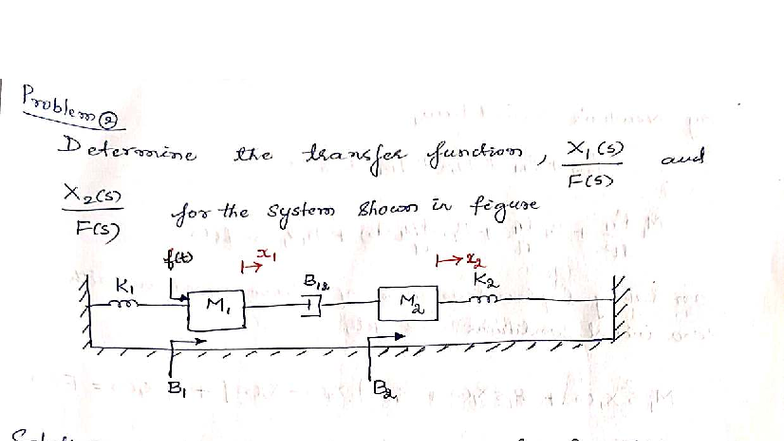 Problem ②
Determine the transfer function, X₁(s)/F(s) and
X₂(s)/F(s) for the system shown in figure
f(t) x₁ x₂
K₁ M₁ B₁₂ M₂ K₂
B₁ B₂